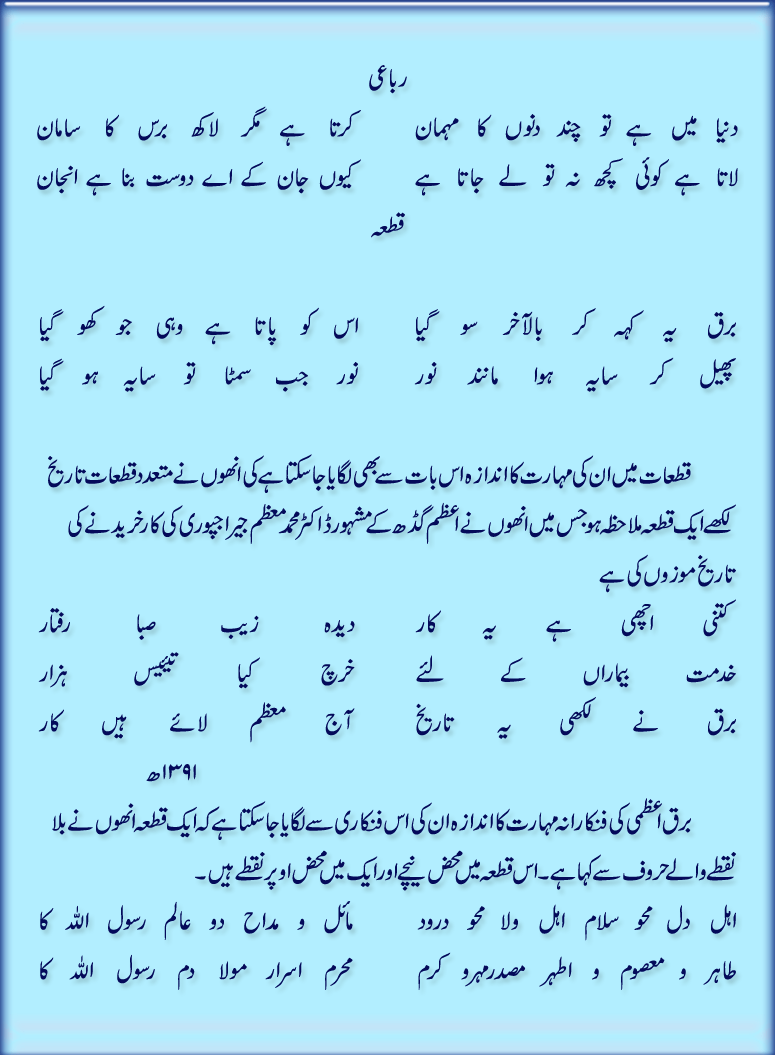 رباعی
دنیا میں ہے تو چند دنوں کا مہمان کرتا ہے مگر لاکھ برس کا سامان
لاتا ہے کوئی کچھ نہ تو لے جاتا ہے کیوں جان کے اے دوست بنا ہے انجان
قطعہ
برق یہ کہہ کر بالآخر سو گیا اس کو پاتا ہے وہی جو کھو گیا
پھیل کر سایہ ہوا مانند نور نور جب سمٹا تو سایہ ہو گیا
قطعات میں ان کی مہارت کا اندازہ اس بات سے بھی لگایا جا سکتا ہے کی انھوں نے متعدد قطعات تاریخ
لکھے ایک قطعہ ملاحظہ ہو جس میں انھوں نے اعظم گڈھ کے مشہور ڈاکٹر محمد معظم جیراجپوری کی کار خریدنے کی
تاریخ موزوں کی ہے
کتنی اچھی ہے یہ کار دیدہ زیب صبا رفتار
خدمت بیماراں کے لئے خرچ کیا تیئیس ہزار
برق نے لکھی یہ تاریخ آج معظم لائے ہیں کار
۱۳۹۱ھ
برق اعظمی کی فنکارانہ مہارت کا اندازہ ان کی اس فنکاری سے لگایا جا سکتا ہے کہ ایک قطعہ انھوں نے بلا
نقطے والے حروف سے کہا ہے۔ اس قطعہ میں محض نیچے اور ایک میں محض اوپر نقطے ہیں۔
اہل دل محو سلام اہل ولا محو درود مائل و مداح دو عالم رسول اللہ کا
طاہر و معصوم و اطہر مصدر مہرو کرم محرم اسرار مولا دم رسول اللہ کا